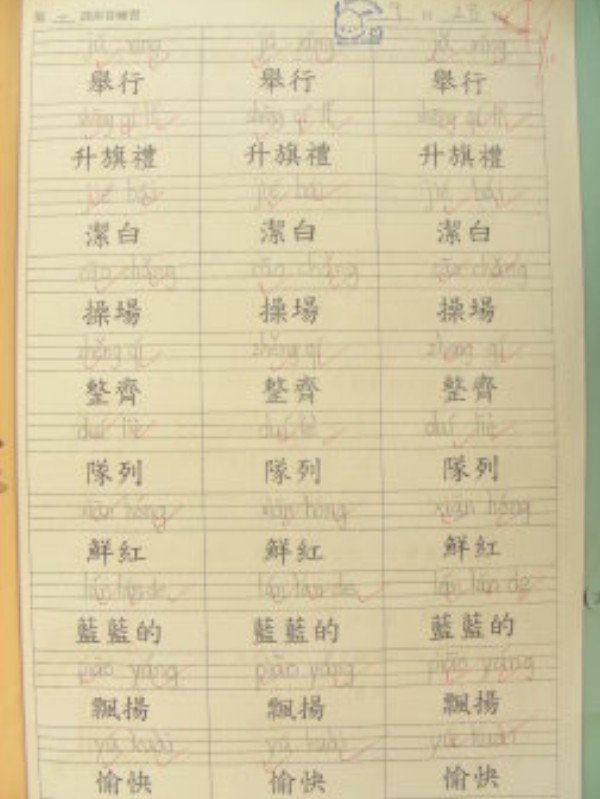 第一課
9 28
jǔ xíng jǔ xíng jǔ xíng
舉行 舉行 舉行
shēng qí lǐ shēng qí lǐ shēng qí lǐ
升旗禮 升旗禮 升旗禮
jié bái jié bái jié bái
潔白 潔白 潔白
cāo chǎng cāo chǎng cāo chǎng
操場 操場 操場
zhěng qí zhěng qí zhěng qí
整齊 整齊 整齊
duì liè duì liè duì liè
隊列 隊列 隊列
xiān hóng xiān hóng xiān hóng
鮮紅 鮮紅 鮮紅
lán lán de lán lán de lán lán de
藍藍的 藍藍的 藍藍的
piāo yáng piāo yáng piāo yáng
飄揚 飄揚 飄揚
yú kuài yú kuài yú kuài
愉快 愉快 愉快